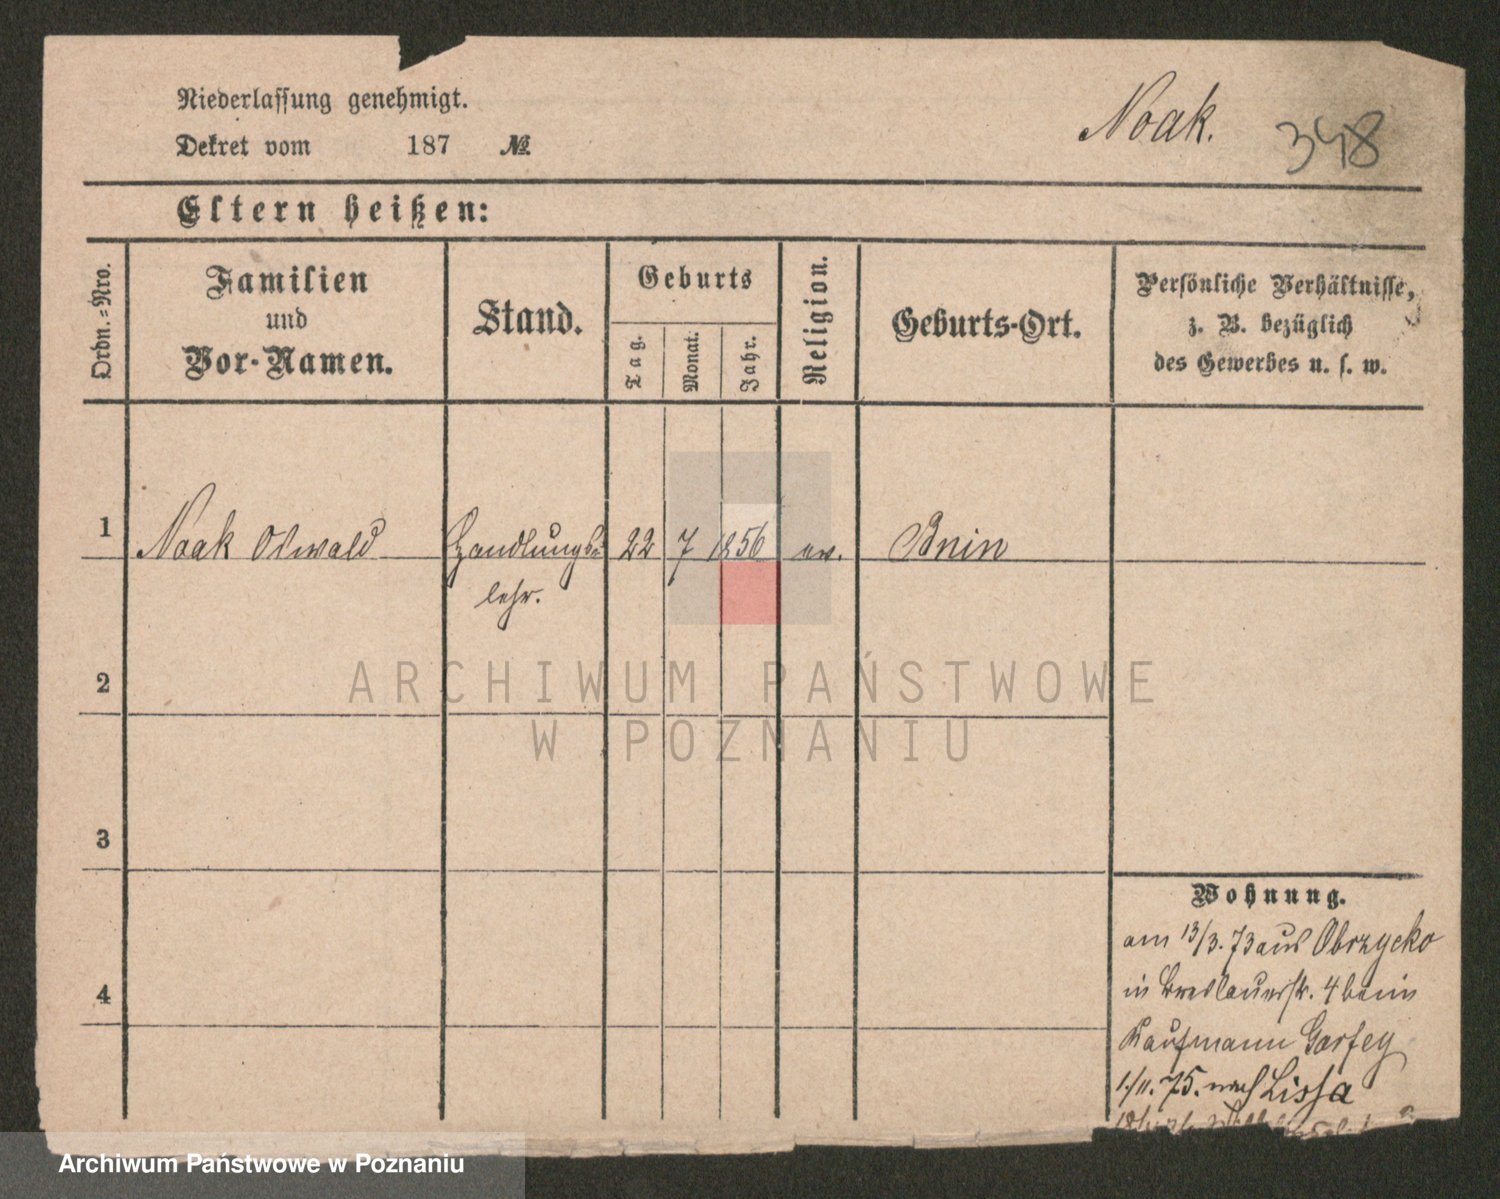 Niederlassung genehmigt.
Dekret vom 187 №
Noak.
348
Eltern heißen:
Ordn.=Nro.
Familien
und
Vor-Namen.
Stand.
Geburts
Tag.
Monat.
Jahr.
Religion.
Geburts-Ort.
Persönliche Verhältnisse,
z. B. bezüglich
des Gewerbes u. s. w.
1 Noak Oswald Handlungs- 22 7 1856 ev. Bnin
lehr.
2
ARCHIWUM PAŃSTWOWE
W POZNANIU
3
Wohnung.
am 13/3. 73 aus Obrzycko
in Breslauerstr. 4 beim
4
Kaufmann
1./11. 75. nach Lissa
Archiwum Państwowe w Poznaniu